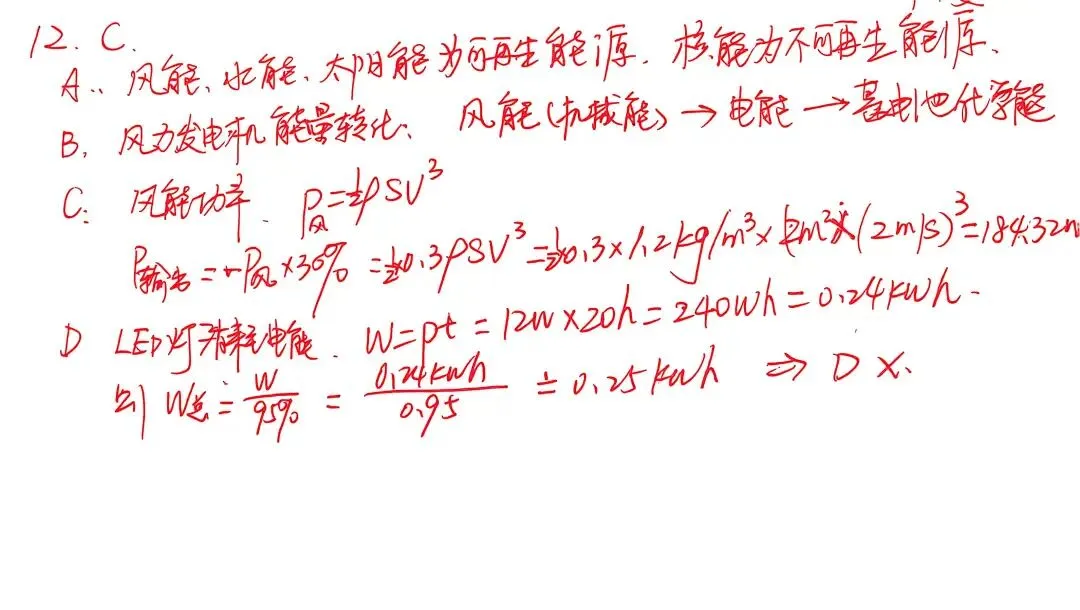 12. C.
A.. 风能、水能、太阳能为可再生能源. 核能为不可再生能源.
B. 风力发电机能量转化: 风能(机械能) → 电能 → 蓄电池化学能
C: 风能功率. P风=½ρSV³
P输出=P风×30% =½×0.3ρSV³=½×0.3×1.2kg/m³× m²×(2m/s)³=184.32
D LED灯消耗电能. W=pt = 12W×20h=240Wh=0.24kWh.
则 W总=W/95% = 0.24kWh/0.95 ≐ 0.25kWh ⇒ D ×.